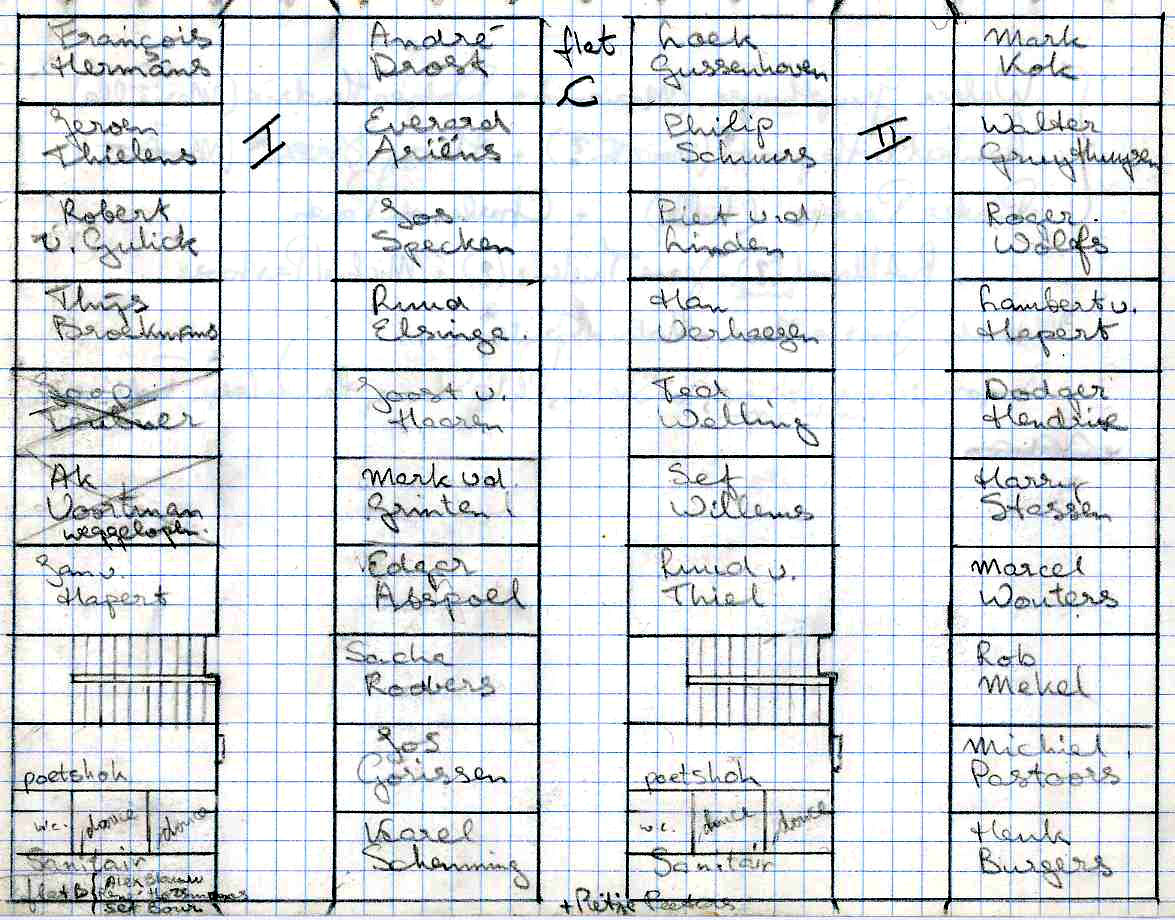 François
Hermans
Jeroen
Thielens
Robert
v. Gulick
Thijs
Broekmans
Joop
Teubner
Ak
Voortman
weggelopen.
Jan v.
Hapert
poetshok
w.c. douce douce
Sanitair
flat B Alex Blauw
Sef Bour
I
André
Drost
Everard
Ariëns
Jos
Specken
Ruud
Elsinga.
Joost v.
Haaren
Mark vd.
Grinten
Edgar
Abspoel
Sacha
Rodbers
Jos
Gorissen
Karel
Schemming
flat
C
Loek
Gussenhoven
Philip
Schuurs
Piet v.d
Linden
Han
Verhaegen
Ted
Walling
Sef
Willems
Ruud v.
Thiel
poetshok
w.c. douce douce
Sanitair
+ Pietje Peeters
II
Mark
Kok
Walter
Gruythuysen
Roger.
Wolfs
Lambert v.
Hapert
Dodger
Hendrix
Harry
Stassen
Marcel
Wouters
Rob
Mekel
Michiel
Pastoors
Henk
Burgers